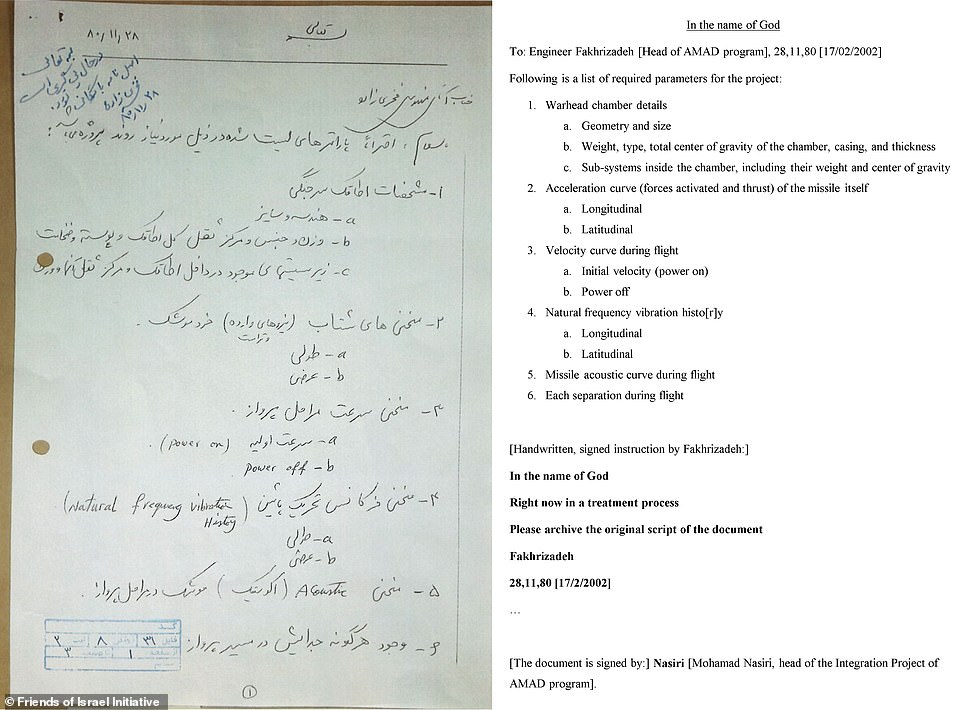 ۸۰/۱۱/۲۸
بسمه تعالی
جناب آقای مهندس فخری زاده
سلام، احتراماً پارامترهای لیست شده در ذیل مورد نیاز روند پروژه می باشد:
۱- مشخصات اطاقک سرجنگی
a- هندسه و سایز
b- وزن و جنس و مرکز ثقل کل اطاقک و پوسته و ضخامت
c- زیر سیستم های موجود در داخل اطاقک و مرکز ثقل آنها و وزن
۲- منحنی های شتاب (نیروهای وارده) خود موشک.
a- طولی
b- عرضی
۳- منحنی سرعت مراحل پرواز.
a- سرعت اولیه (power on).
b- power off
۴- منحنی فرکانس تحریک پائین (Natural frequency vibration History)
a- طولی
b- عرضی
۵- منحنی Acoustic (اکوستیک) موشک در مراحل پرواز.
۶- وجود هرگونه جدایش در مسیر پرواز
1
© Friends of Israel Initiative
In the name of God
To: Engineer Fakhrizadeh [Head of AMAD program], 28,11,80 [17/02/2002]
Following is a list of required parameters for the project:
1. Warhead chamber details
a. Geometry and size
b. Weight, type, total center of gravity of the chamber, casing, and thickness
c. Sub-systems inside the chamber, including their weight and center of gravity
2. Acceleration curve (forces activated and thrust) of the missile itself
a. Longitudinal
b. Latitudinal
3. Velocity curve during flight
a. Initial velocity (power on)
b. Power off
4. Natural frequency vibration histo[r]y
a. Longitudinal
b. Latitudinal
5. Missile acoustic curve during flight
6. Each separation during flight
[Handwritten, signed instruction by Fakhrizadeh:]
In the name of God
Right now in a treatment process
Please archive the original script of the document
Fakhrizadeh
28,11,80 [17/2/2002]
…
[The document is signed by:] Nasiri [Mohamad Nasiri, head of the Integration Project of
AMAD program].